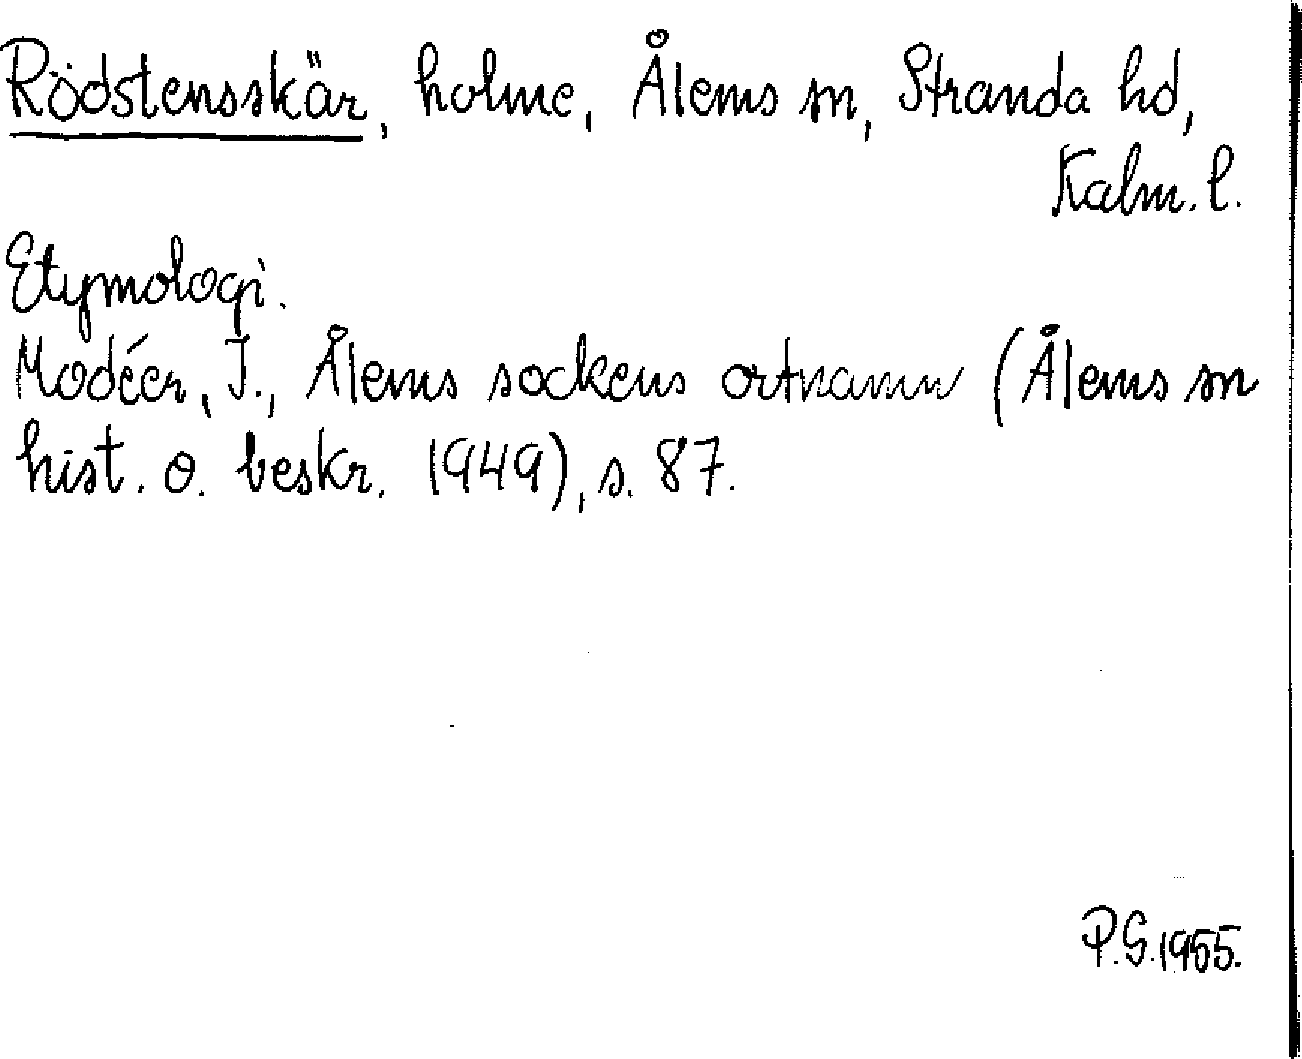 Rödstensskär, holme, Ålems sn, Stranda hd,
Kalm. l.
Etymologi.
Modéer, I., Ålems sockens ortnamn (Ålems sn
hist. o. beskr. 1949), s. 87.
P.G. 1955.